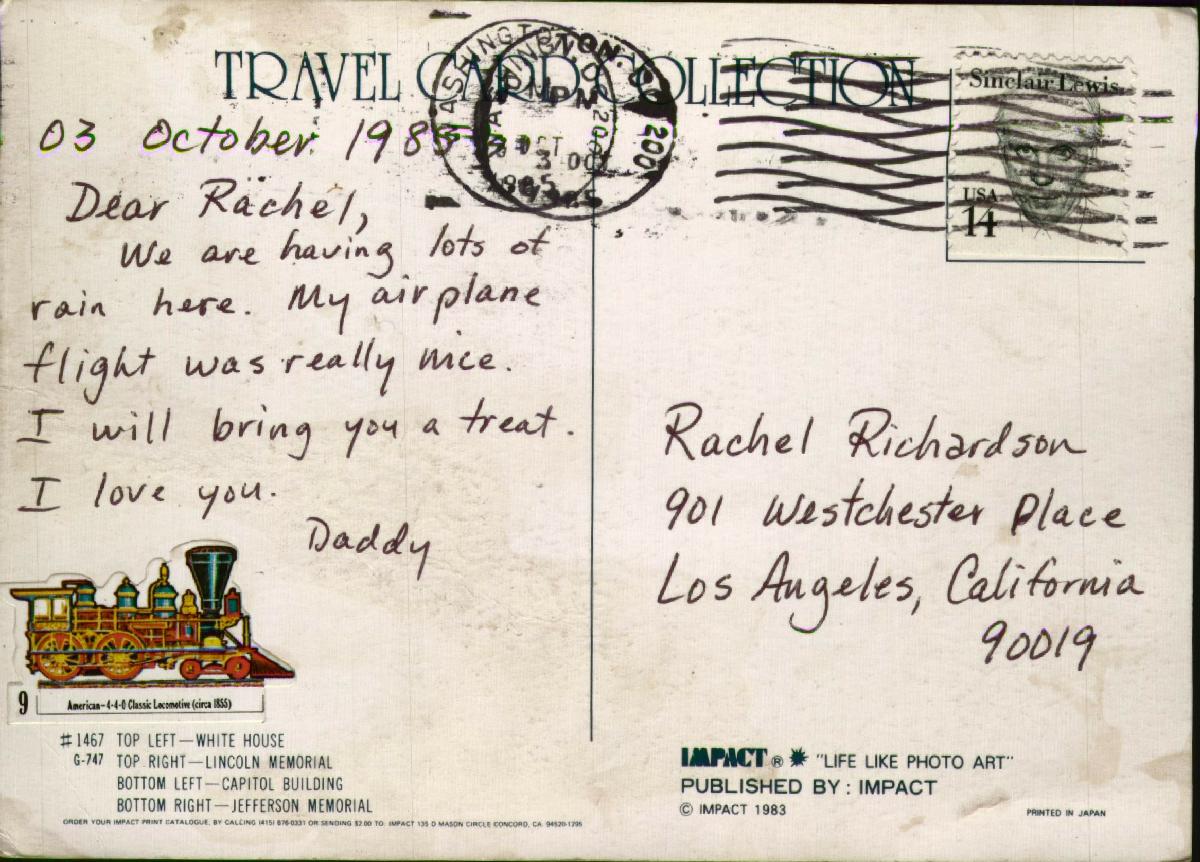 TRAVEL CARD COLLECTION
WASHINGTON, D.C. 200
PM
3 OCT
1985
Sinclair Lewis
USA
14
03 October 1985
Dear Rachel,
We are having lots of
rain here. My airplane
flight was really nice.
I will bring you a treat.
I love you.
Daddy
Rachel Richardson
901 Westchester Place
Los Angeles, California
90019
9 American-4-4-0 Classic Locomotive (circa 1855)
#1467 TOP LEFT—WHITE HOUSE
G-747 TOP RIGHT—LINCOLN MEMORIAL
BOTTOM LEFT—CAPITOL BUILDING
BOTTOM RIGHT—JEFFERSON MEMORIAL
ORDER YOUR IMPACT PRINT CATALOGUE, BY CALLING (415) 676-0331 OR SENDING $2.00 TO: IMPACT 135 D MASON CIRCLE CONCORD, CA. 94520-1295
IMPACT® "LIFE LIKE PHOTO ART"
PUBLISHED BY: IMPACT
© IMPACT 1983
PRINTED IN JAPAN